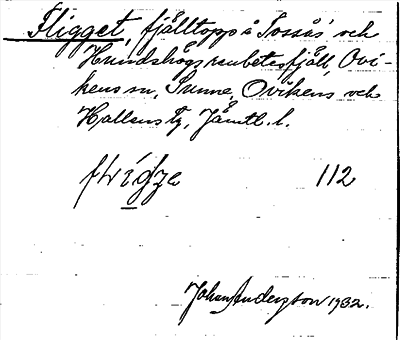 Fligget, fjälltopp å Tossås och
Hundshögs renbetesfjäll, Ovi-
kens sn, Sunne, Ovikens och
Hallens tg, Jämtl. l.
112
Johan Anderzson 1932.